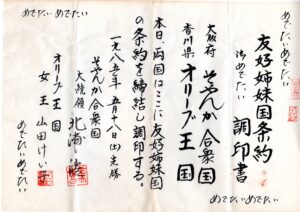 めでたい めでたい
友好姉妹国条約
調印書
御めでたい
大阪府 そやんか合衆国
香川県 オリーブ王国
本日、両国はここに友好姉妹国
の条約を締結し調印する。
一九八三年 五月十八日(土)先勝
そやんか合衆国
大統領
オリーブ王国
女王 山田けい子
めでたいめでたい
めでたいめでたい